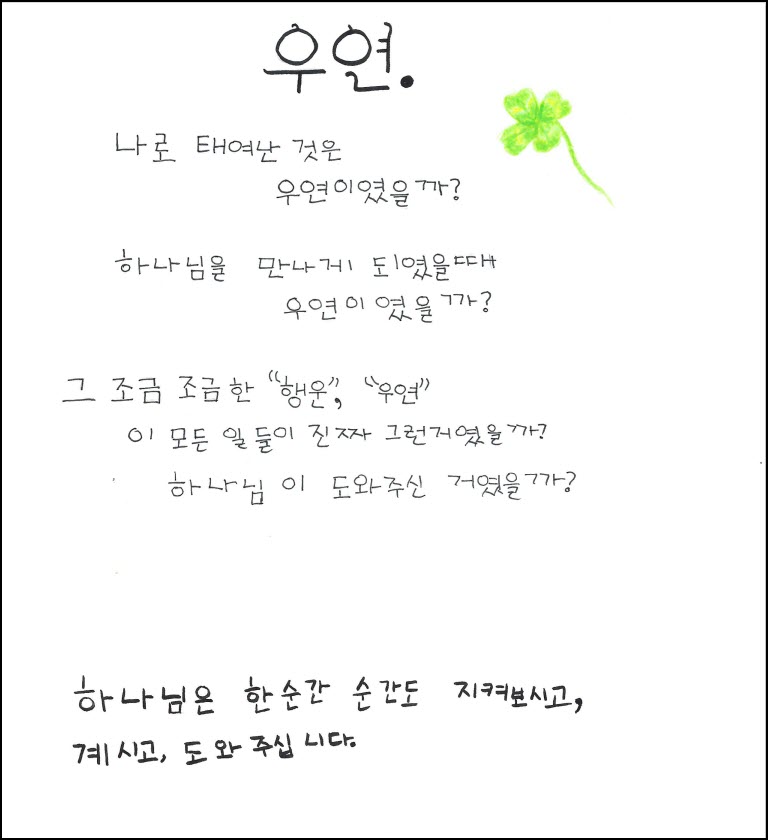 우연.
나로 태여난 것은
우연이였을까?
하나님을 만나게 되였을때
우연이였을까?
그 조금 조금한 "행운", "우연"
이 모든 일들이 진짜 그런거였을까?
하나님이 도와주신 거였을까?
하나님은 한순간 순간도 지켜보시고,
계시고, 도와주십니다.